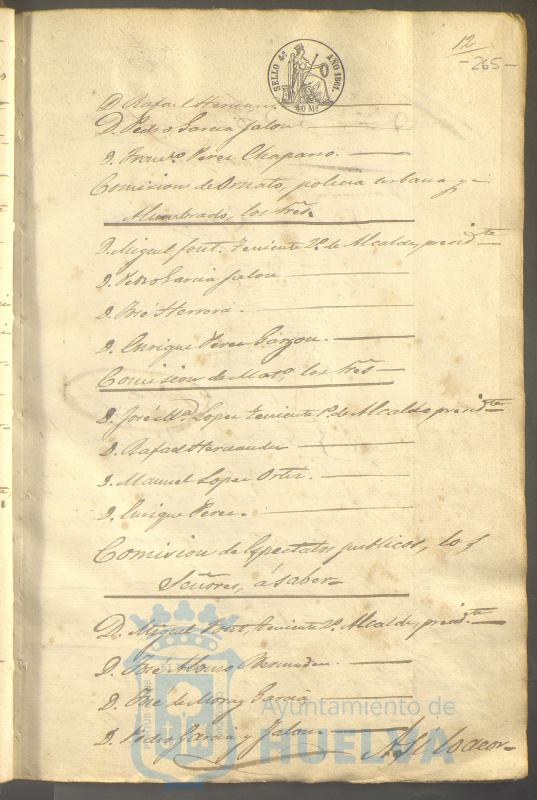 12
-265-
SELLO 4º AÑO 1861.
40 Ms
D. Rafael Hernan
D. Pedro Garcia Jalon
D. Franco Perez Chaparro.
Comision de Ornato, policia urbana y
Alumbrado, los Sres.
D. Miguel font, Teniente 2º de Alcalde, presidte
D. Pedro Garcia Jalon
D. José Herrera.
D. Enrique Perez Garzon.
Comision de Mato, los Sres
D. José Mª Lopez Teniente 1º de Alcalde presidte
D. Rafael Hernandez
D. Manuel Lopez Ortiz.
D. Enrique Perez.
Comision de Espectalos publicos, los
Señores, á saber
D. Miguel Font, teniente 2º Alcalde, presidte
D. José Alonso Bermudez.
D. José de Mora y Garcia
D. Pedro Garcia y Jalon. Asi lo acor-
Ayuntamiento de
HUELVA